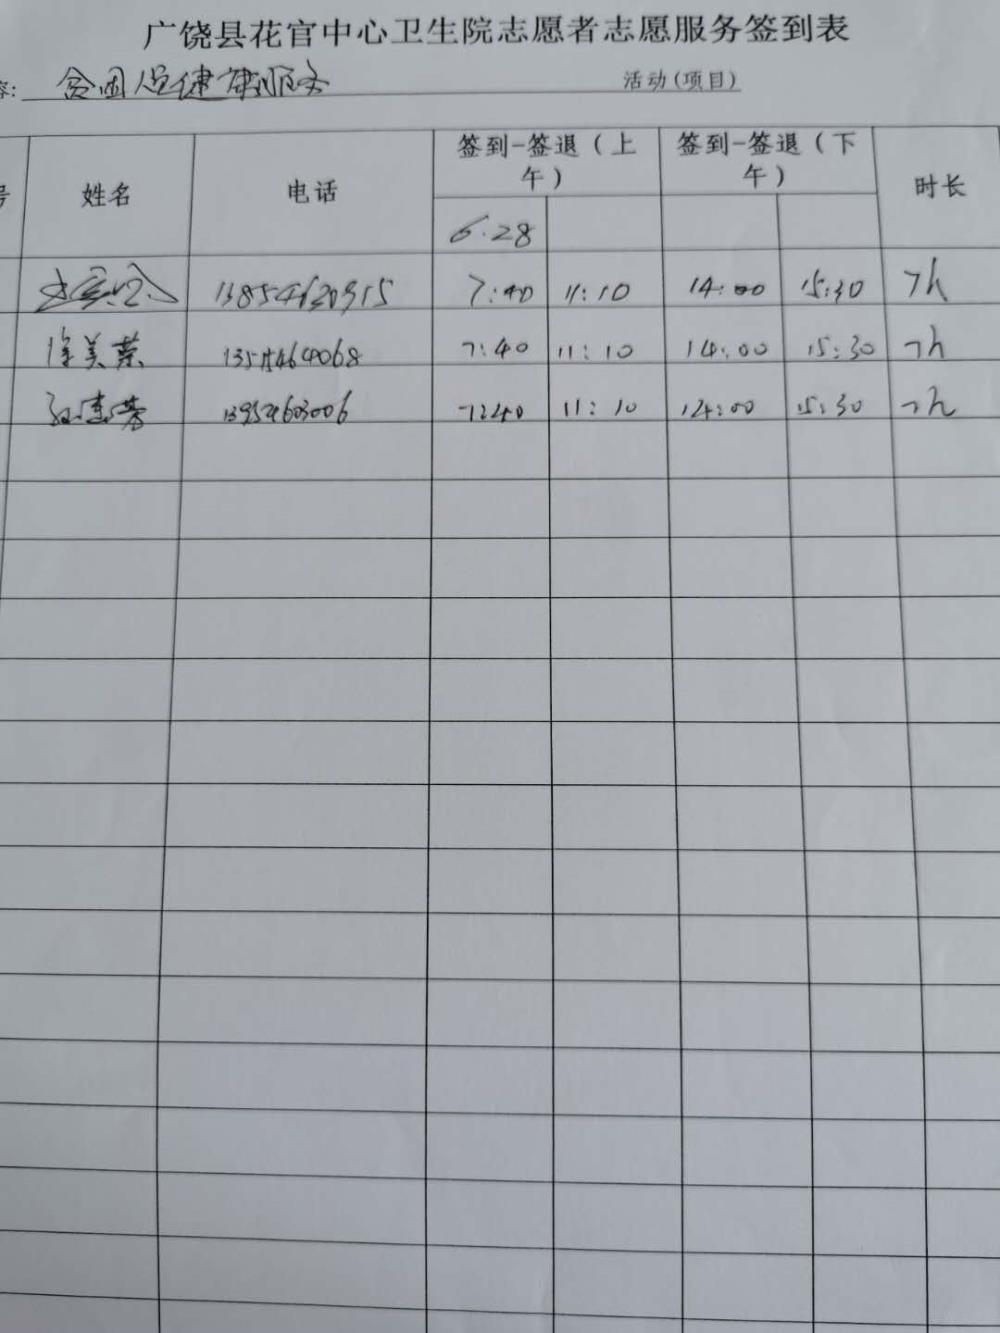 广饶县花官中心卫生院志愿者志愿服务签到表
容: 贫困人口健康服务 活动(项目)
号 姓名 电话 签到-签退(上午) 签到-签退(下午) 时长
6.28
13854620915 7:40 11:10 14:00 15:30 7h
徐美荣 13515464068 7:40 11:10 14:00 15:30 7h
13954603006 7:40 11:10 14:00 15:30 7h